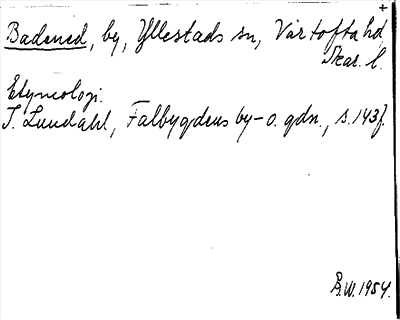 +
Badened, by, Yllestads sn, Vartofta hd
Skar. l.
Etymologi.
I. Lundahl, Falbygdens by- o. gdn., s. 143f.
R.W. 1954.